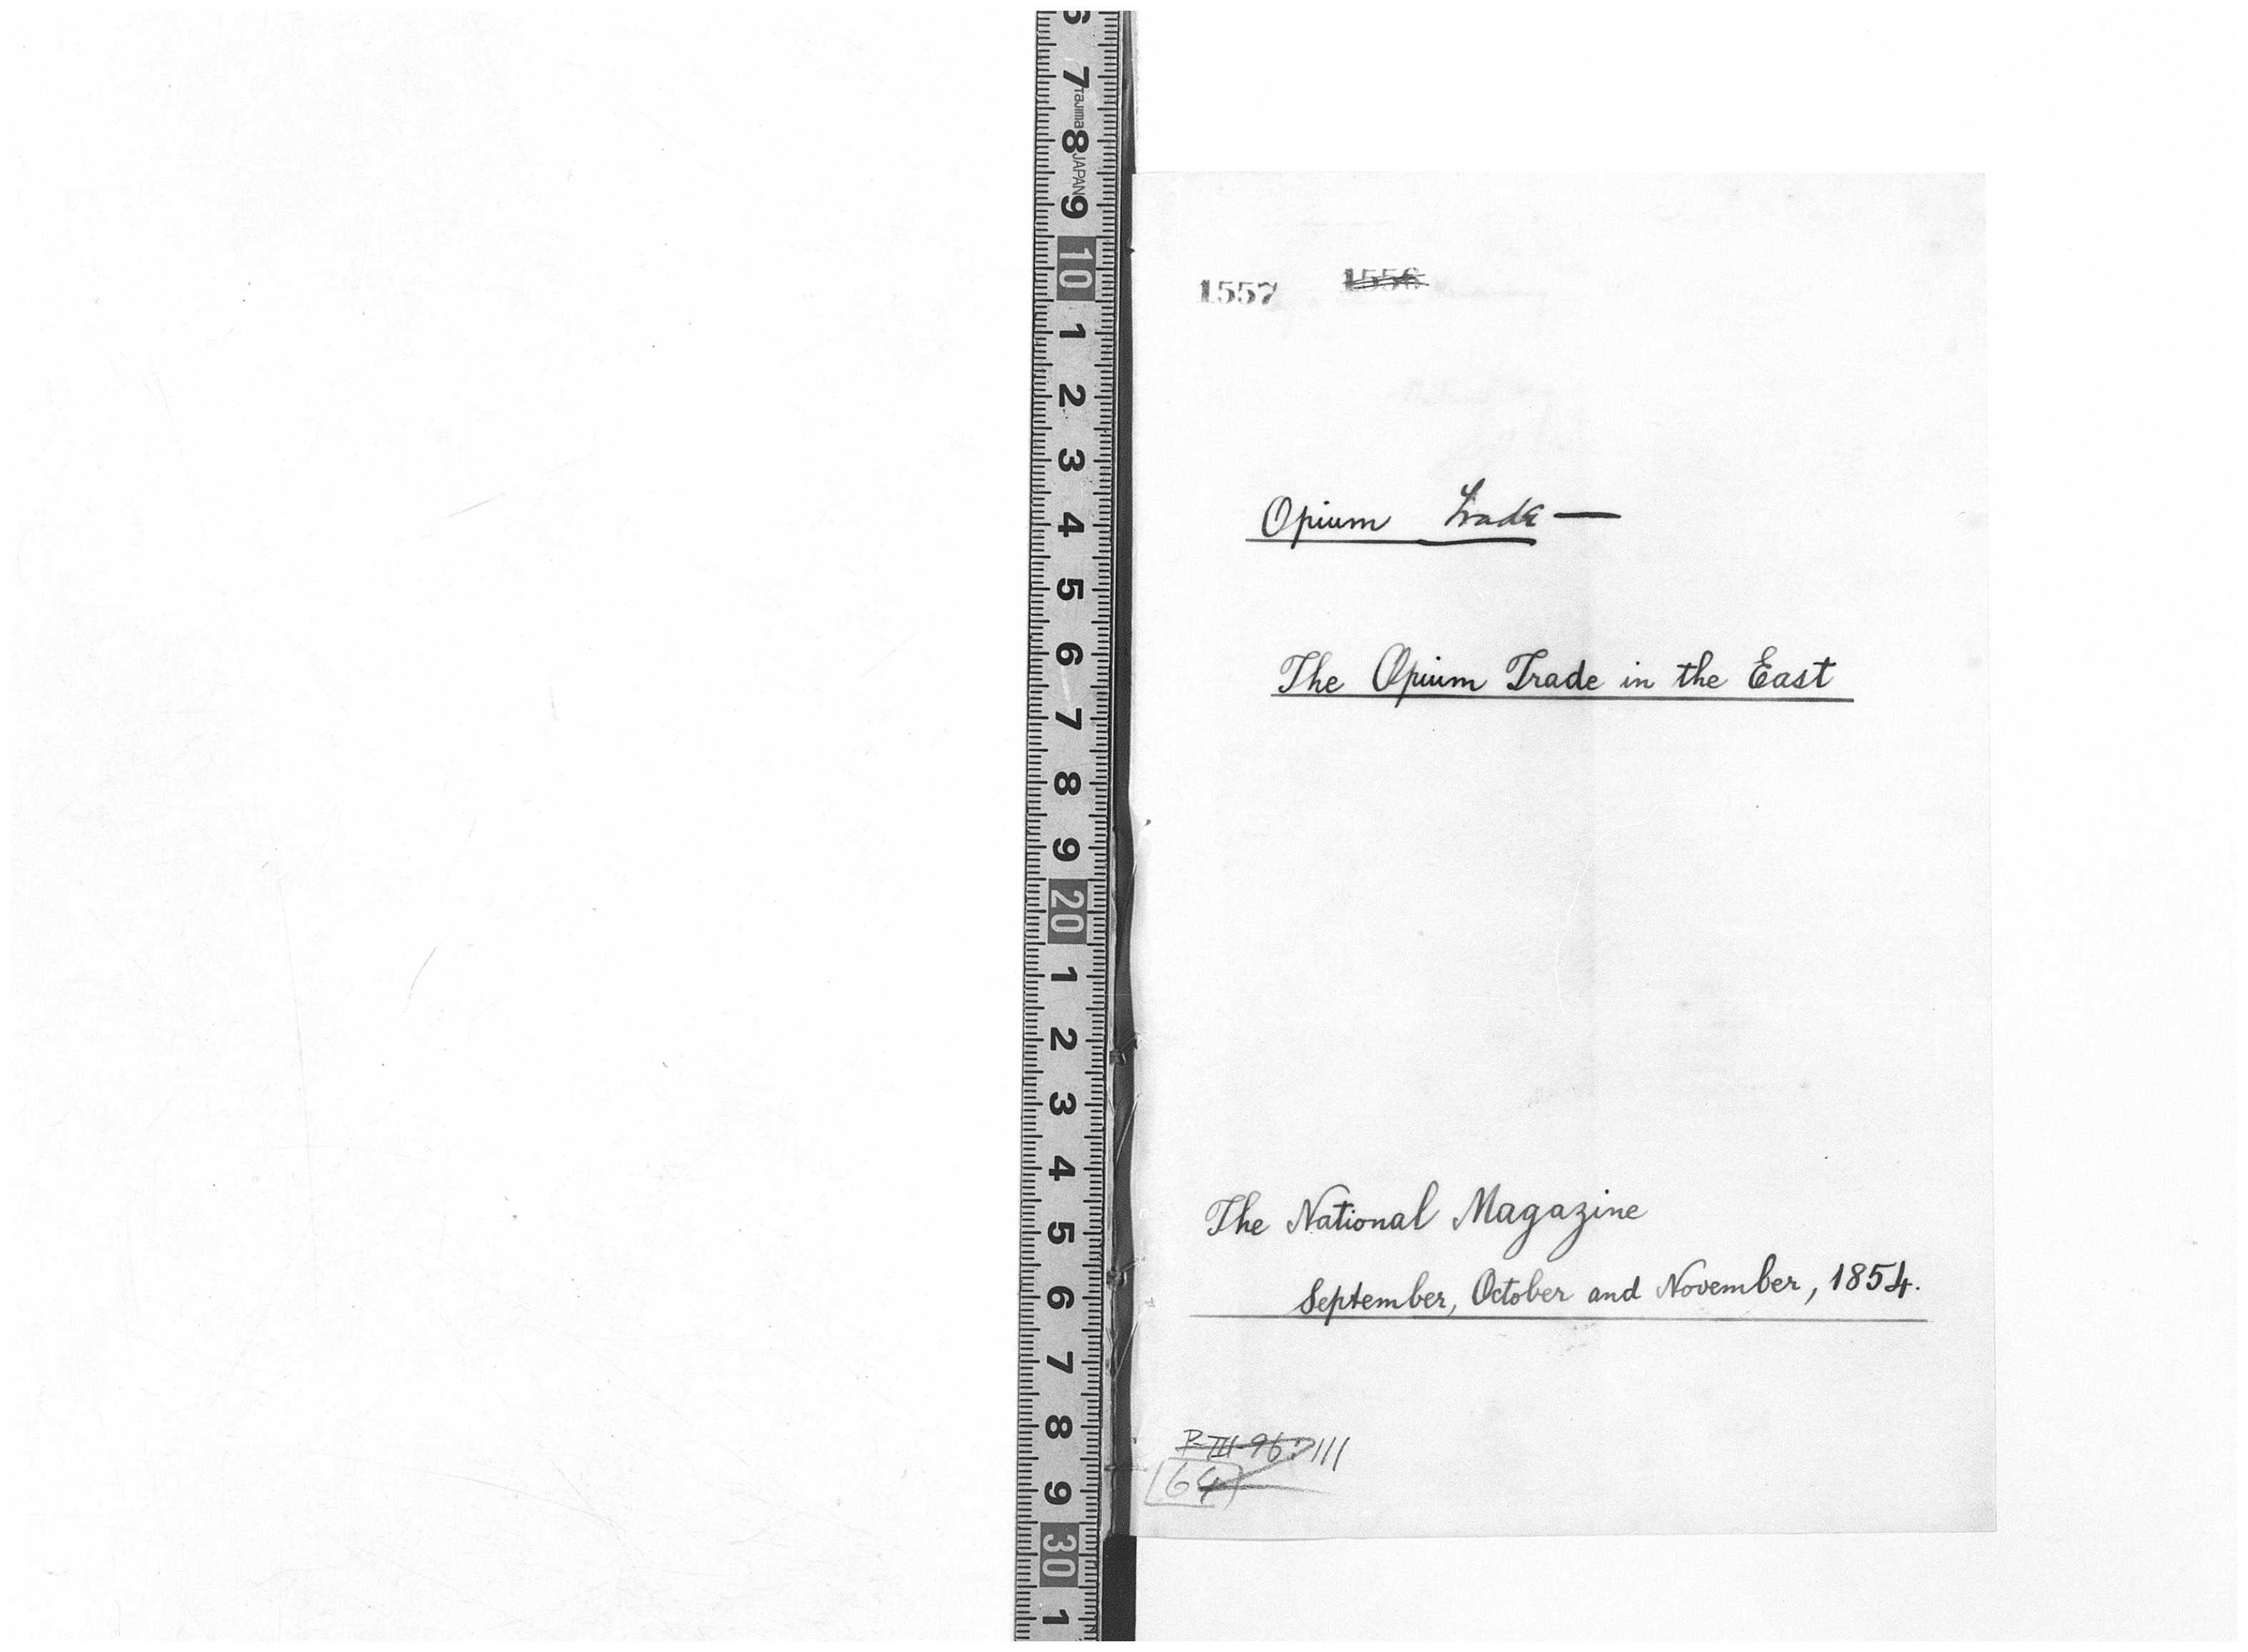 6
7
Tajima
8
JAPAN
9
10
1
2
3
4
5
6
7
8
9
20
1
2
3
4
5
6
7
8
9
30
1
1557 1556
Opium Trade —
The Opium Trade in the East
The National Magazine
September, October and November, 1854.
P-III-96 111
64